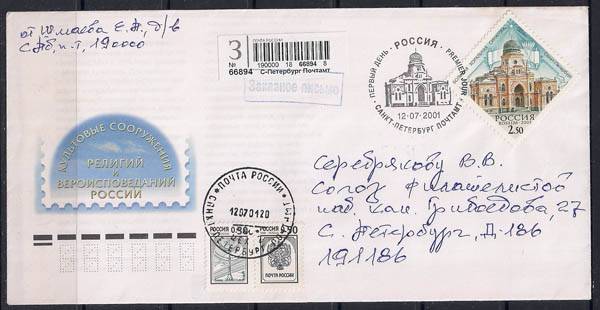 от Шмаева Е.П., д/в
СПб, п-т, 190000
ПОЧТА РОССИИ
З
190000 18 66894 8
66894 С-Петербург Почтамт
Заказное письмо
ПЕРВЫЙ ДЕНЬ • РОССИЯ • PREMIER JOUR
12-07-2001
САНКТ-ПЕТЕРБУРГ ПОЧТАМТ
РОССИЯ
ROSSIJA 2001
2.50
КУЛЬТОВЫЕ СООРУЖЕНИЯ
РЕЛИГИЙ
И
ВЕРОИСПОВЕДАНИЙ
РОССИИ
Серебрякову В.В.
Союз филателистов
наб. кан. Грибоедова, 27
С. Петербург, Д-186
191186
ПОЧТА РОССИИ
12070120
САНКТ-ПЕТЕРБУРГ
РОССИЯ
РОССИЯ
ПОЧТА РОССИИ